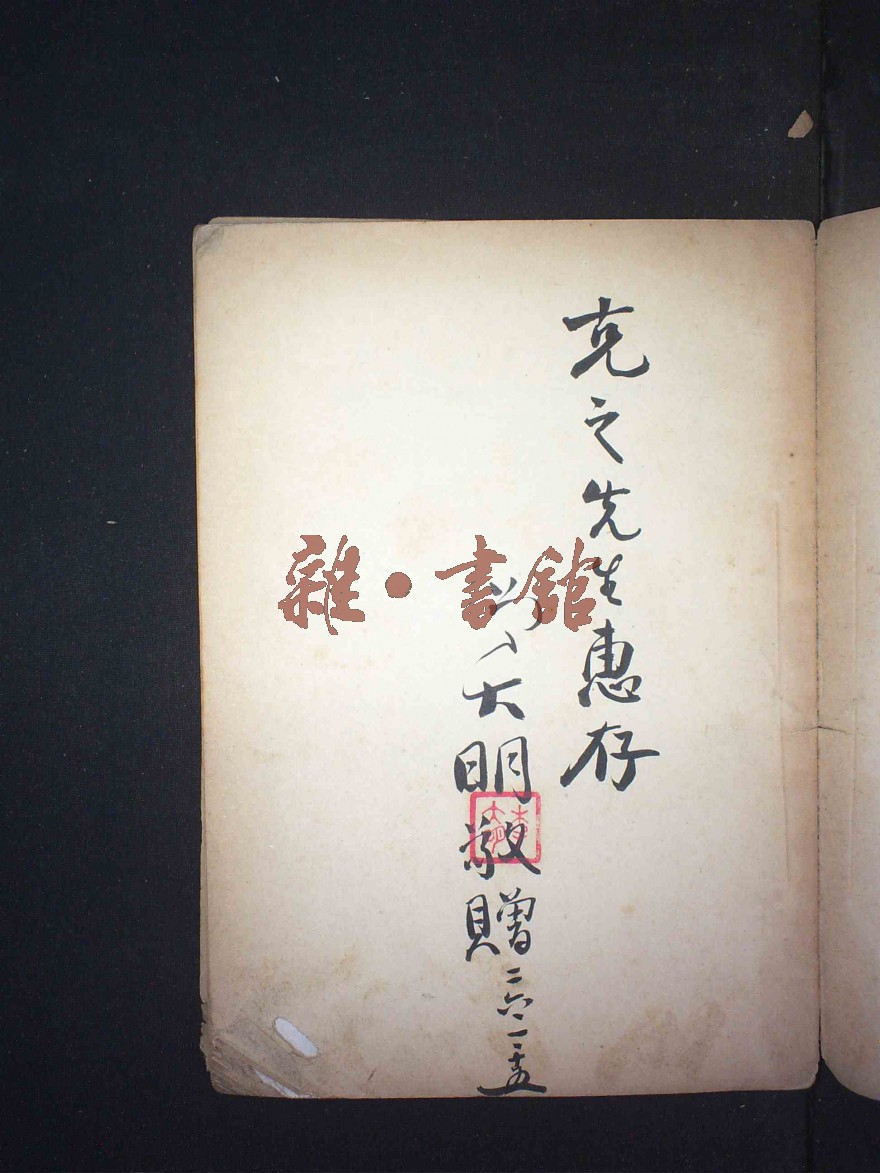 克之先生惠存
大明敬贈 二六.一.十五
雜·書館